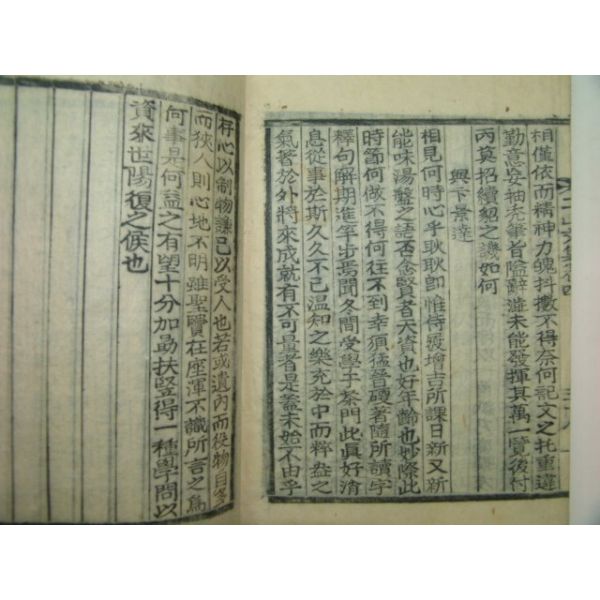 相僅依而精神力魄抖擻不得奈何記文之托重違
勤意妄抽禿筆旨隘辭澁未能發揮其萬一覽後付
丙莫招續貂之譏如何
與卞景達
相見何時心乎耿耿卽惟侍履增吉所課日新又新
能味湯盤之語否念賢者天資也好年齡也妙際此
時節何做不得何往不到幸須猛着硬着隨所讀字
釋句解期進年步焉聞冬間受學子茶門此眞好消
息從事於斯久久不已温知之樂充於中而粹盎之
氣著於外將來成就有不可量者是盖未始不由乎
存心以制物謙已以受人也若或遺內而役物自多
而狹人則心地不明雖聖賢在座渾不識所言之爲
何事是何益之有望十分加勖扶竪得一種學問以
資來世陽復之候也